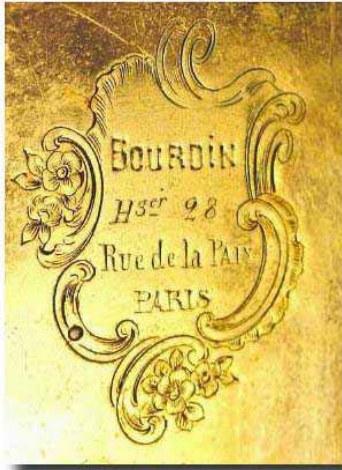 BOURDIN
Hger 28
Rue de la Paix
PARIS